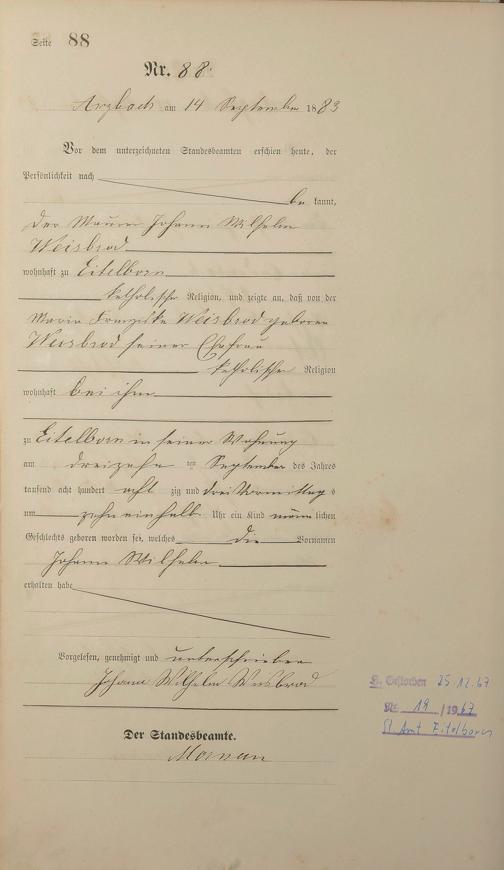 Seite 88
Nr. 88.
Arzbach am 14 September 1883
Vor dem unterzeichneten Standesbeamten erschien heute, der
Persönlichkeit nach
be kannt,
der Maurer Johann Wilhelm
Weisbrod
wohnhaft zu Eitelborn
katholischer Religion, und zeigte an, daß von der
Maria Franziska Weisbrod geborene
Weisbrod seiner Ehefrau
katholischer Religion
wohnhaft bei ihm
zu Eitelborn in seiner Wohnung
am dreizehn ten September des Jahres
tausend acht hundert acht zig und drei Vormittags
um zehn einhalb Uhr ein Kind männlichen
Geschlechts geboren worden sei, welches die Vornamen
Johann Wilhelm
erhalten habe
Vorgelesen, genehmigt und unterschrieben
Johann Wilhelm Weisbrod
Der Standesbeamte.
Gestorben 25.12.67
Nr. 19 /1967
St Amt Eitelborn